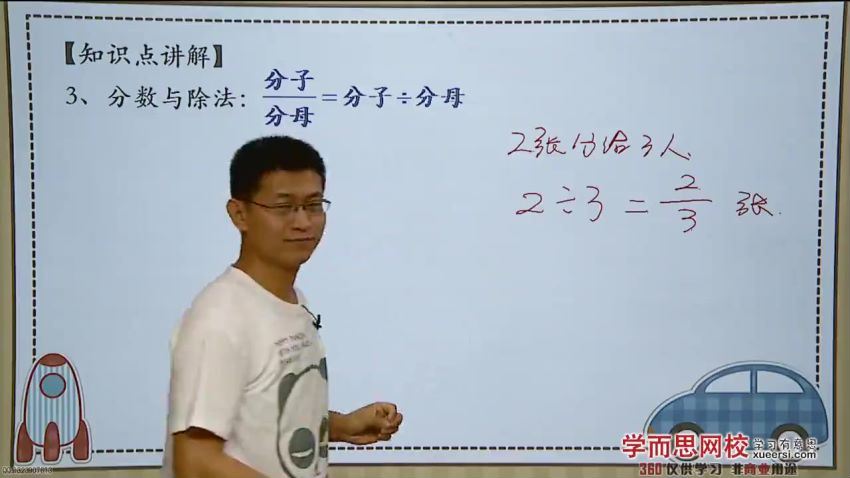 【知识点讲解】
3、分数与除法：分子/分母=分子÷分母
2张分给3人.
2÷3=2/3 张.
学而思网校 学习有意思
xueersi.com
360°仅供学习 非商业用途